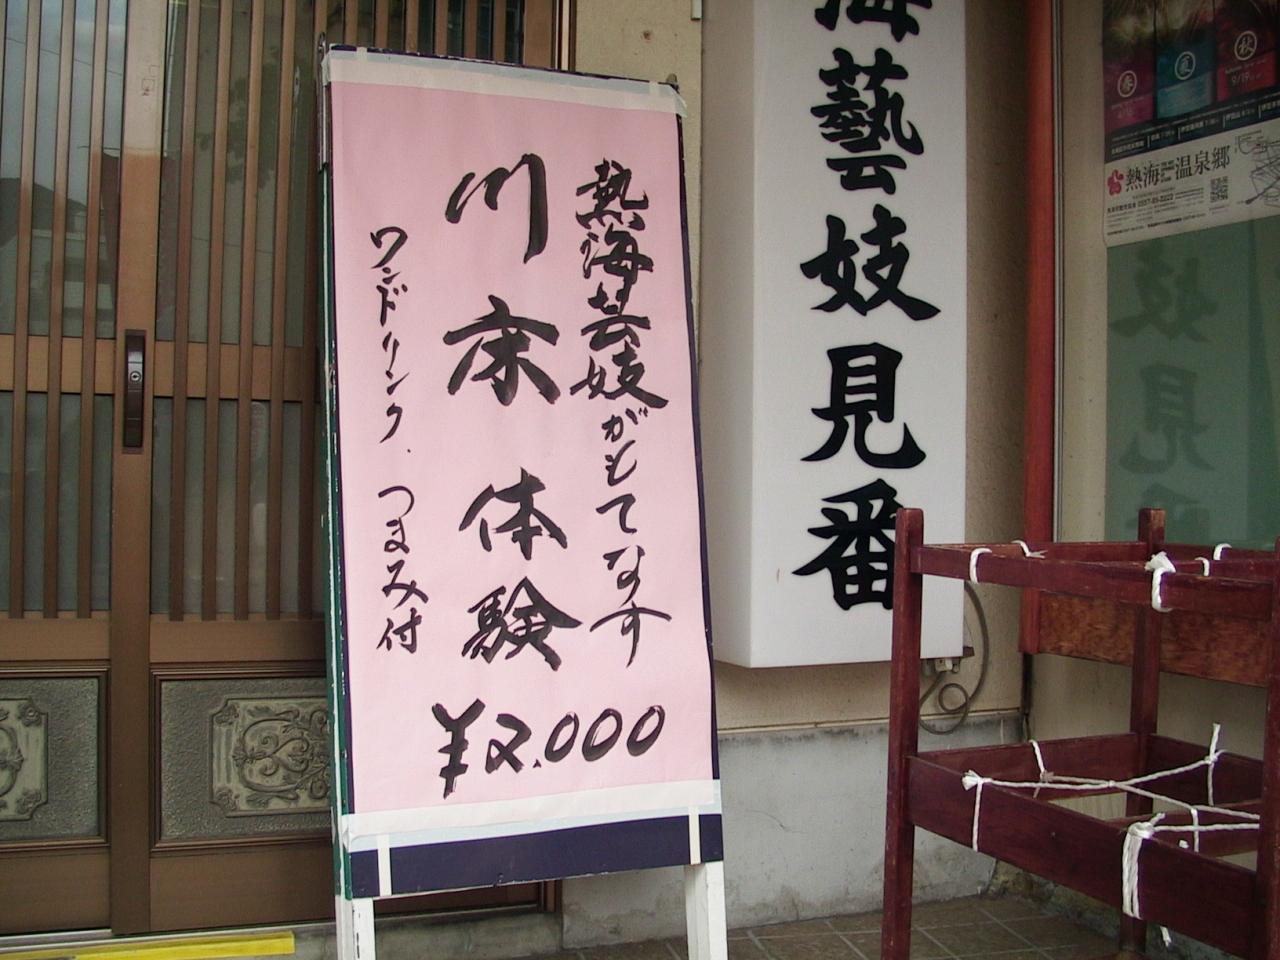 熱海芸妓がもてなす
川床体験
ワンドリンク、つまみ付
¥2,000
海藝妓見番
春
夏
秋
9/19
熱海温泉郷
妓見番